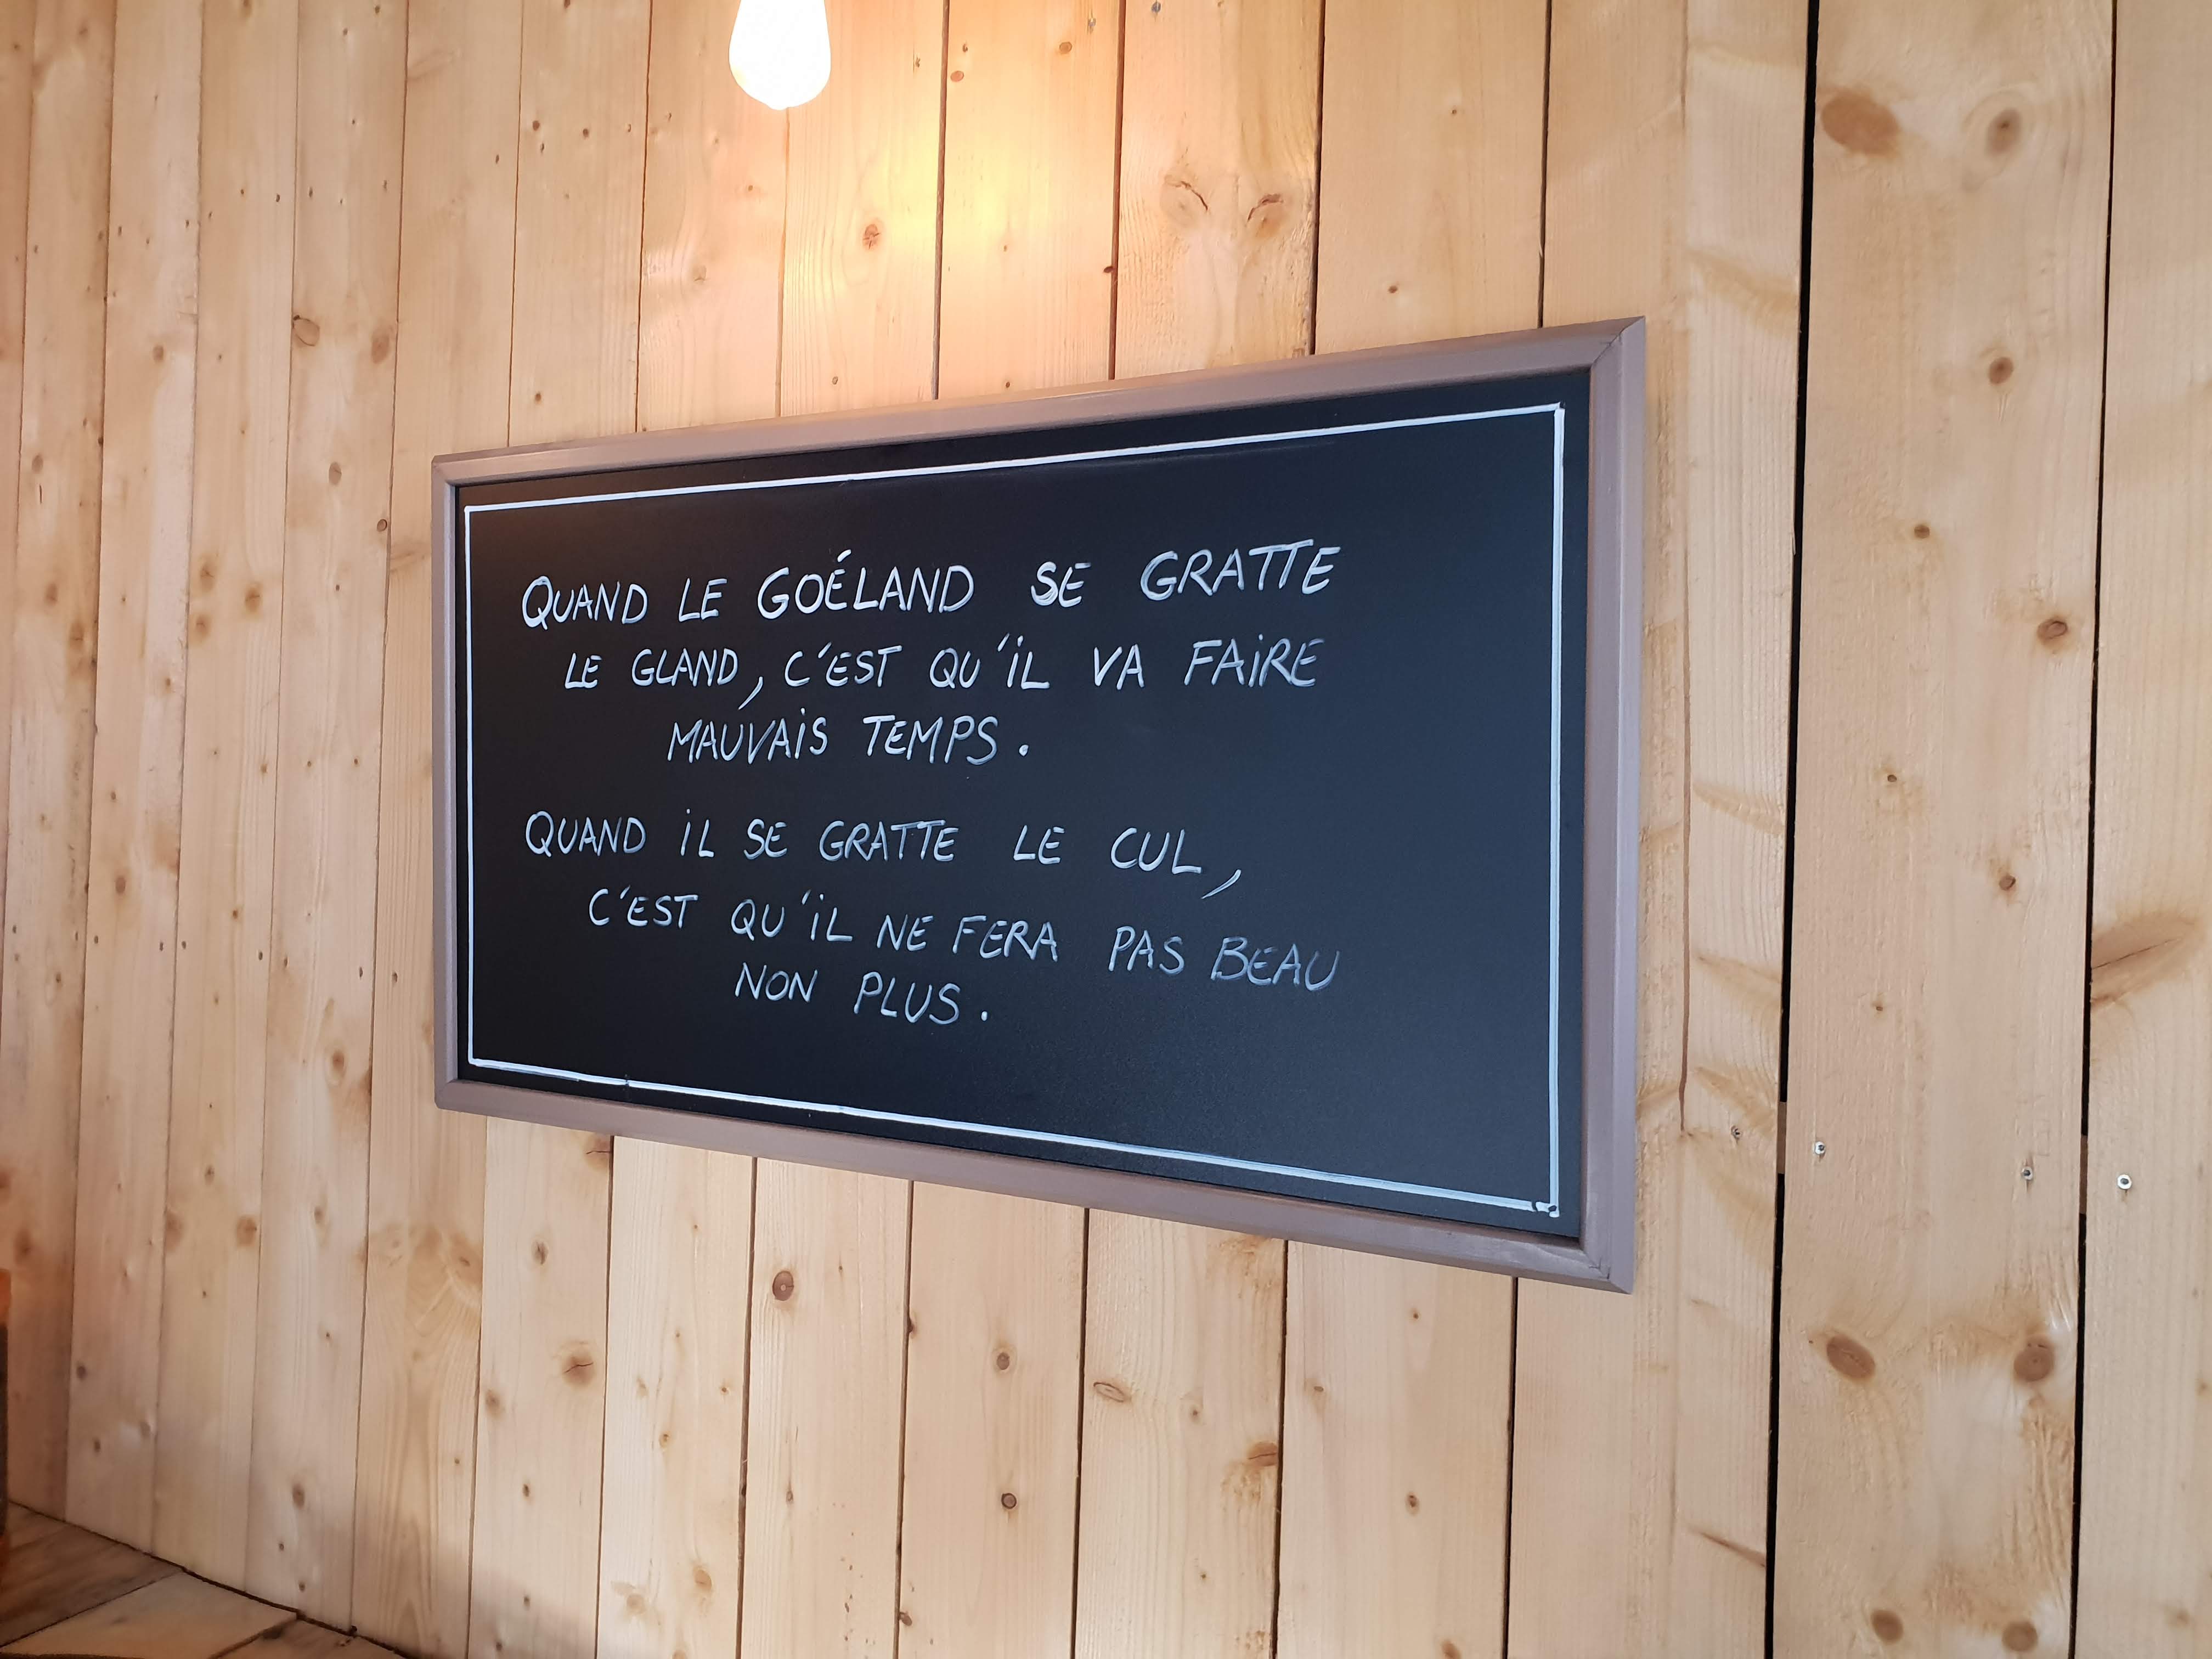 QUAND LE GOÉLAND SE GRATTE
LE GLAND, C'EST QU'IL VA FAIRE
MAUVAIS TEMPS.
QUAND IL SE GRATTE LE CUL,
C'EST QU'IL NE FERA PAS BEAU
NON PLUS.